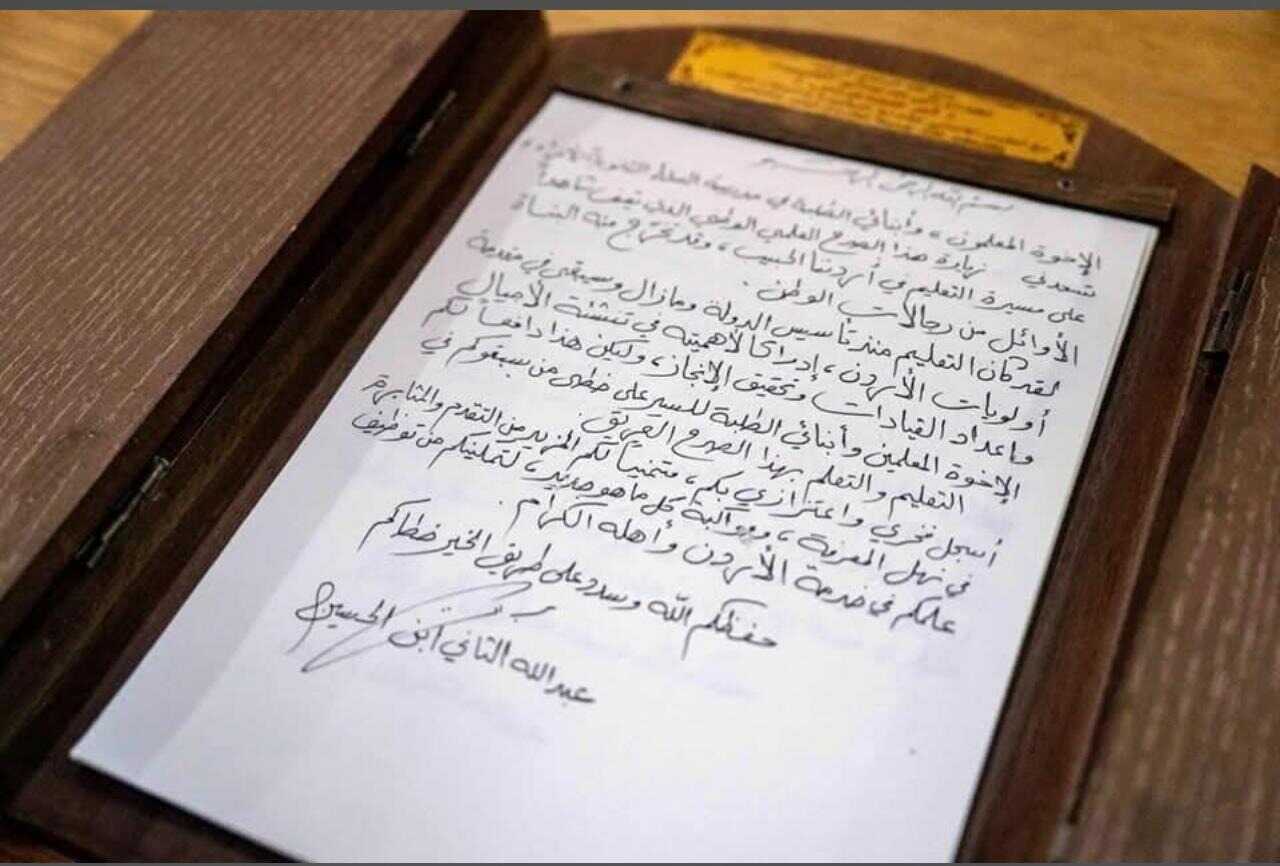 بسم الله الرحمن الرحيم
الإخوة المعلمون، وأبنائي الطلبة في مدرسة السلط الثانوية
تسعدني زيارة هذا الصرح العلمي الوطني الذي يقف شاهداً
على مسيرة التعليم في أردننا الحبيب، وقد تخرج منه البناة
الأوائل من رجالات الوطن.
لقد كان التعليم منذ تأسيس الدولة ومازال وسيبقى في مقدمة
أولويات الأردن، إدراكاً لأهميته في تنشئة الأجيال
وإعداد القيادات وتحقيق الإنجاز، وليكن هذا دافعاً لكم
الإخوة المعلمين وأبنائي الطلبة للسير على خطى من سبقوكم في
التعليم والتعلم بهذا الصرح العريق.
أسجل فخري واعتزازي بكم، متمنياً لكم المزيد من التقدم والمثابرة
في نهل المعرفة، ومواكبة كل ما هو جديد، لتمكينكم من توظيف
علمكم في خدمة الأردن وأهله الكرام.
حفظكم الله وسدد على طريق الخير خطاكم
عبدالله الثاني ابن الحسين